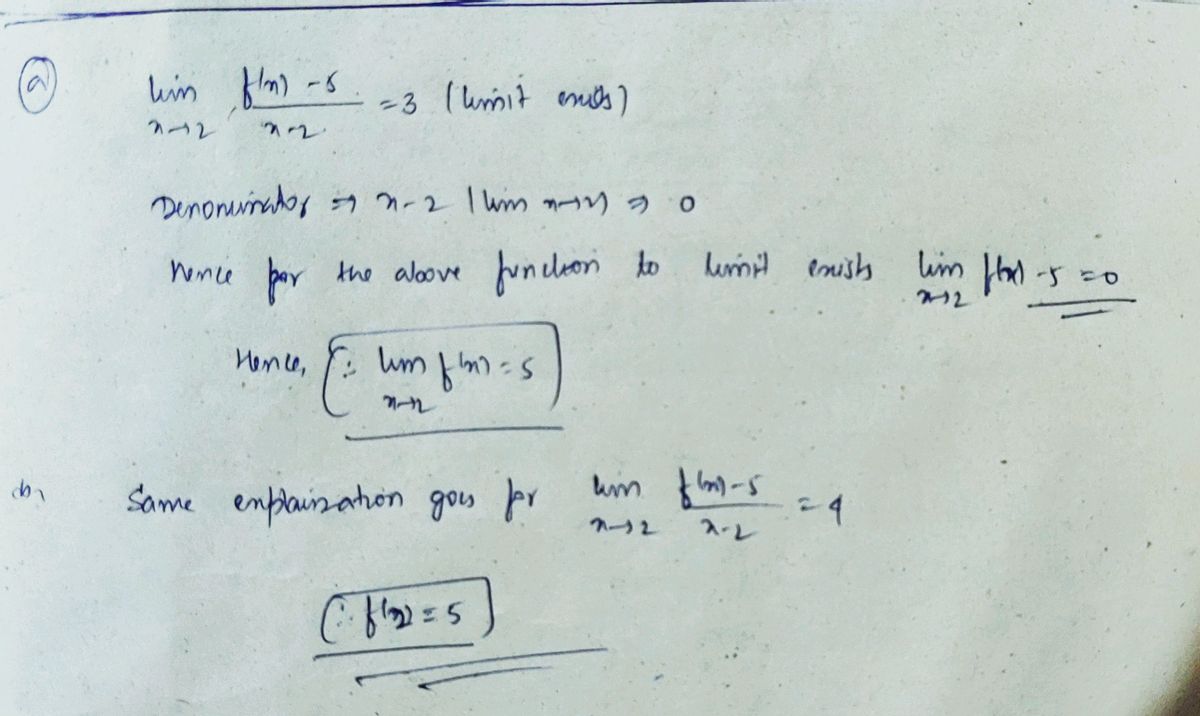 (a) lim x→2 f(x) - 5 / x-2 = 3 (limit exists)
Denominator ⇒ x-2 (lim x→2) ⇒ 0
hence for the above function to limit exists lim x→2 f(x) - 5 = 0
Hence, ∴ lim x→2 f(x) = 5
(b) Same explaination goes for lim x→2 f(x) - 5 / x-2 = 4
∴ f(x) = 5